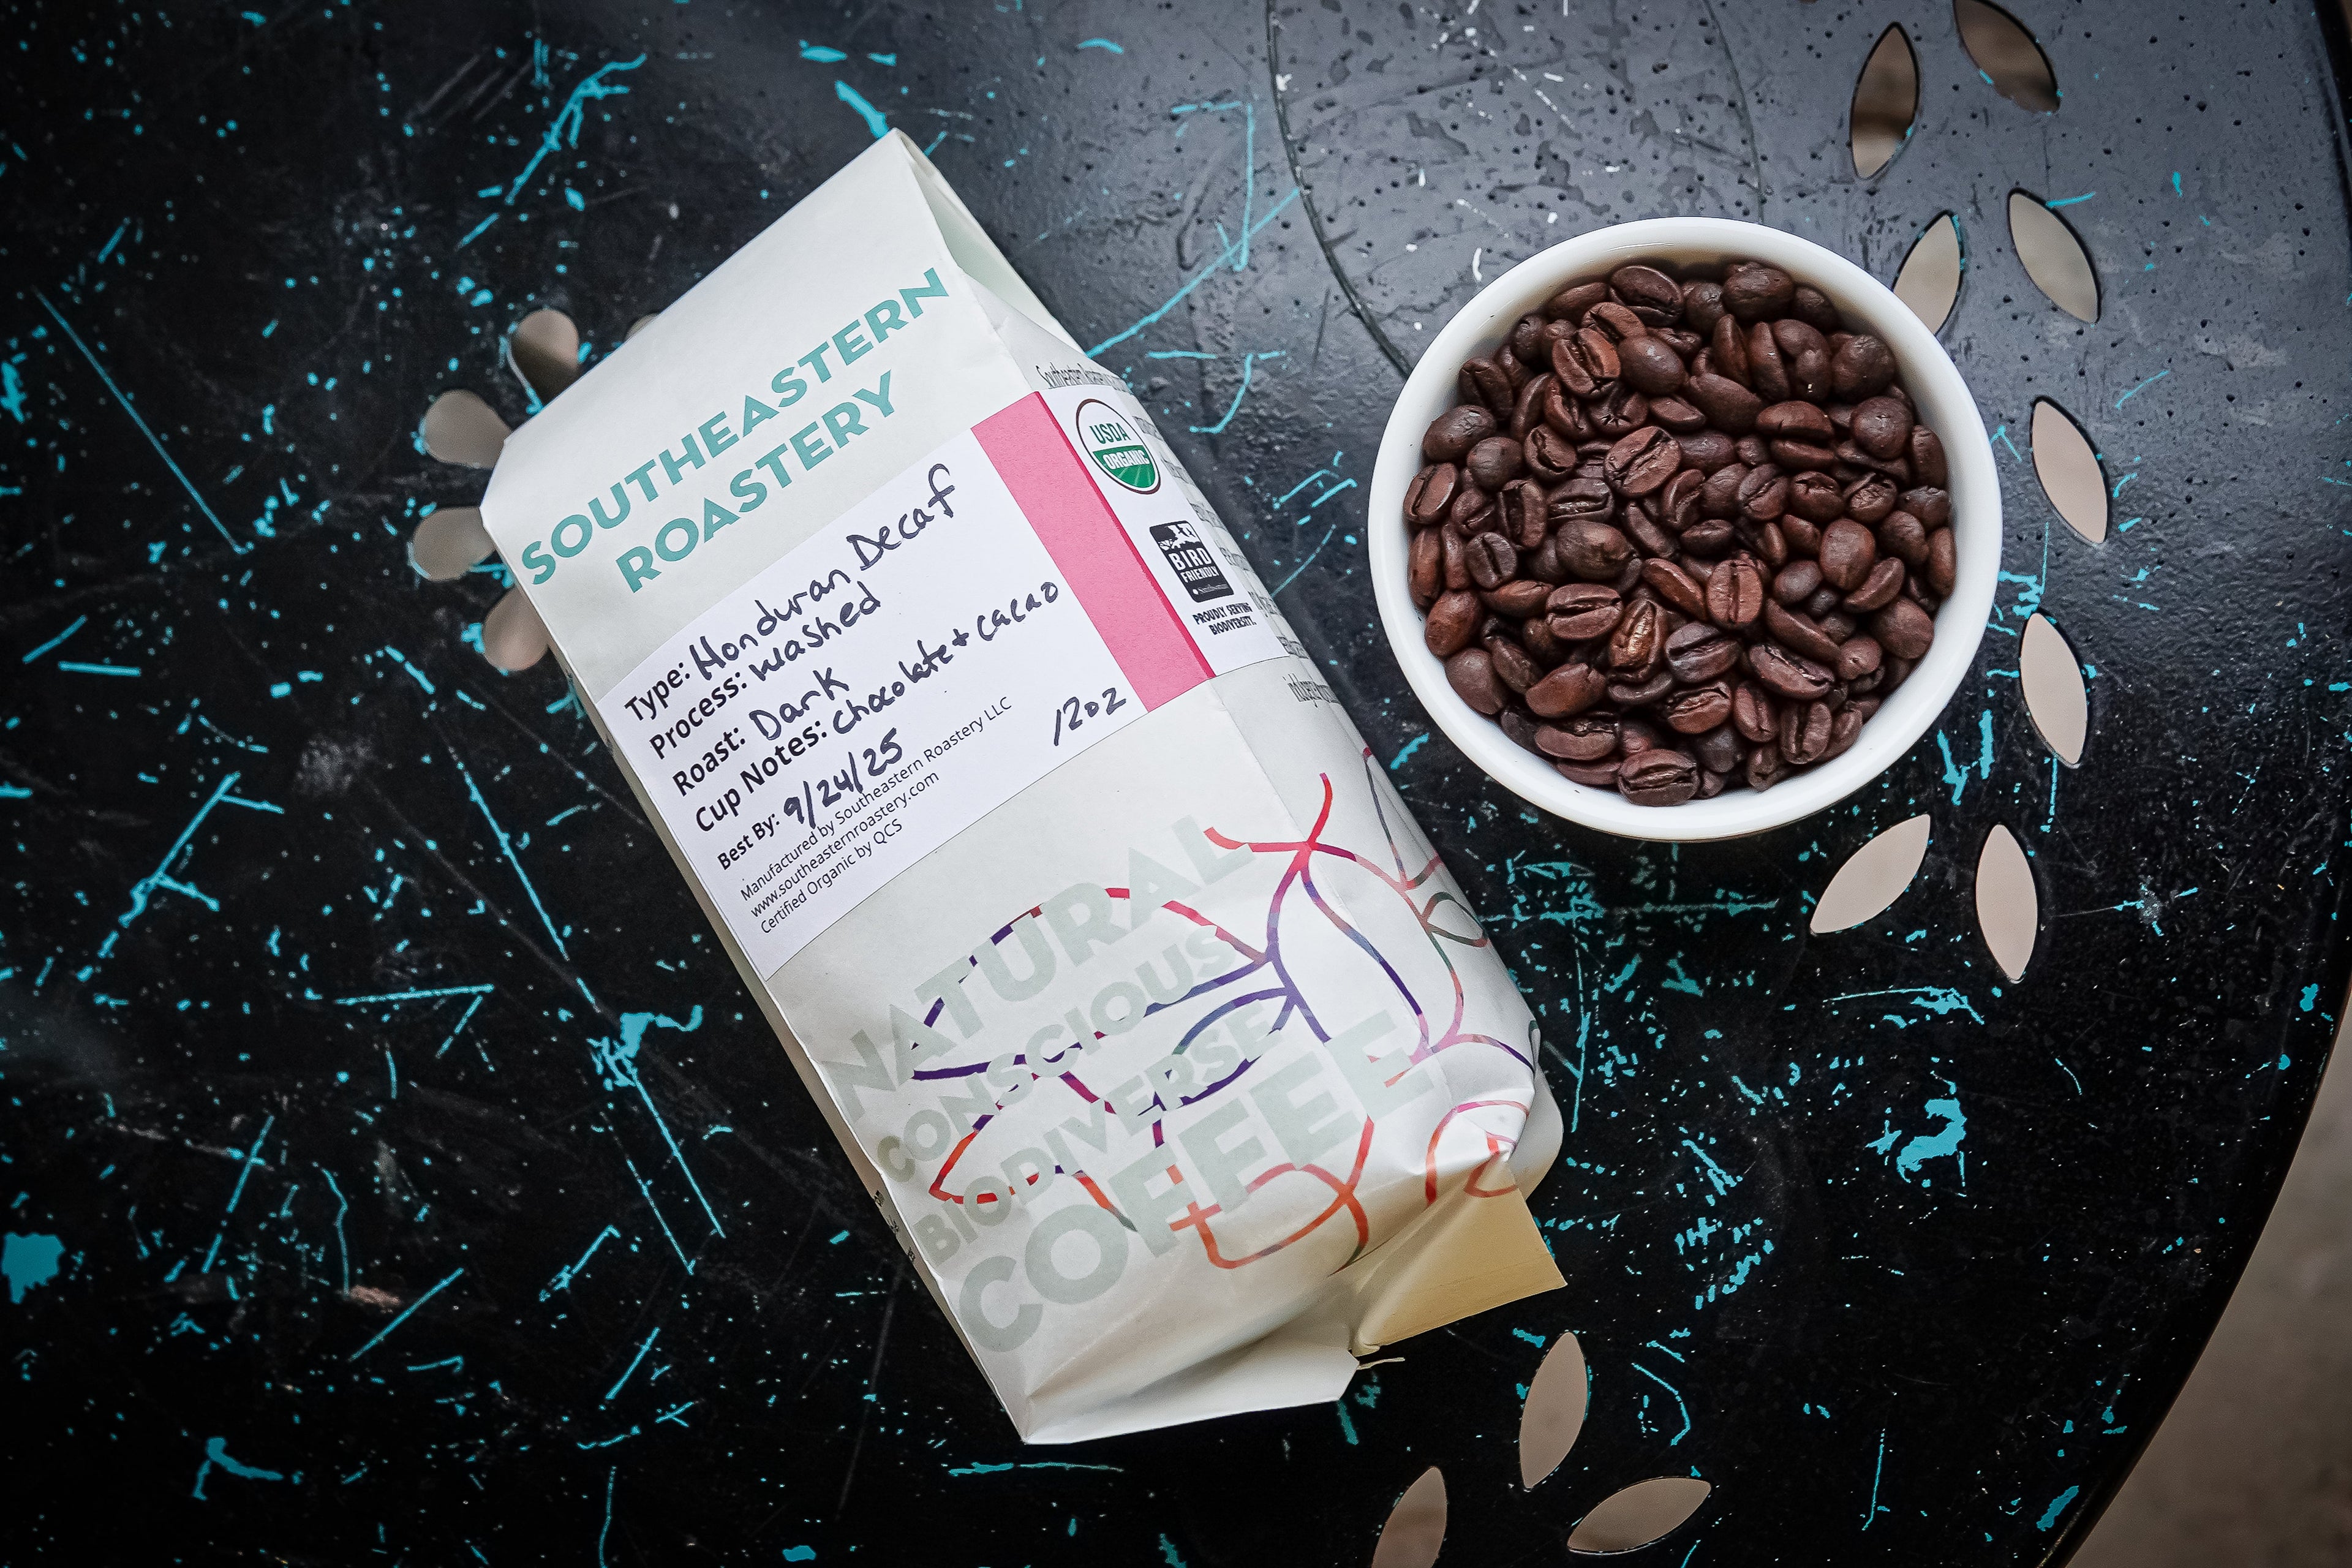 SOUTHEASTERN
ROASTERY
Type: Honduran Decaf
Process: washed
Roast: Dark
Cup Notes: chocolate + cacao
Best By: 9/24/25
12oz
Manufactured by Southeastern Roastery LLC
www.southeasternroastery.com
Certified Organic by QCS
USDA
ORGANIC
BIRD
FRIENDLY
PROUDLY SERVING
BIODIVERSITY.
NATURAL
CONSCIOUS
BIODIVERSE
COFFEE
Southeastern